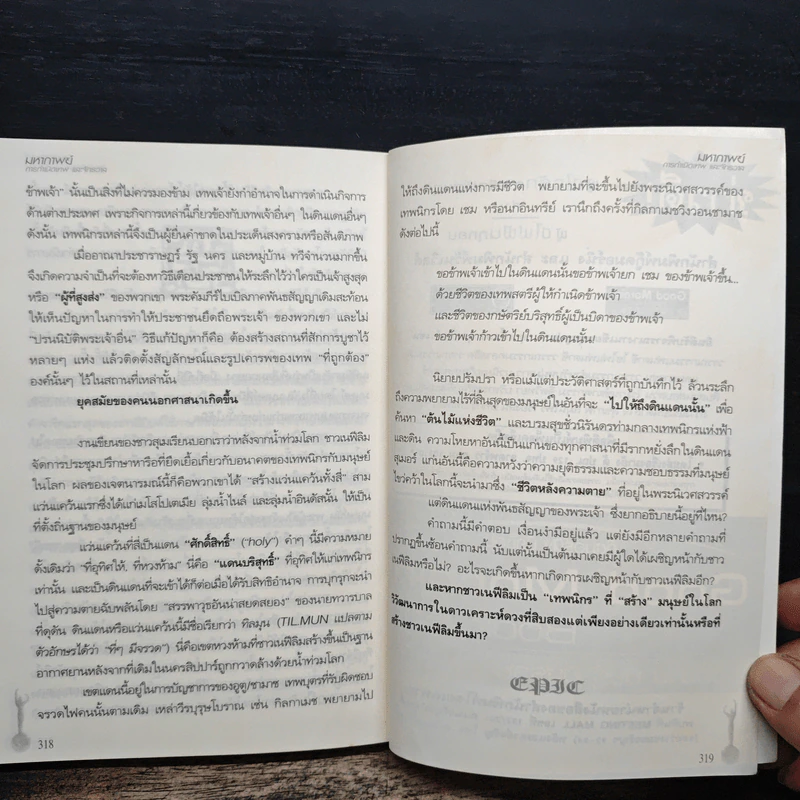 มหากาพย์
ข้าพเจ้า" นั้นเป็นสิ่งที่ไม่ควรมองข้าม เทพเจ้ายังกำอำนาจในการดำเนินกิจการ
ด้านต่างประเทศ เพราะกิจการเหล่านี้เกี่ยวข้องกับเทพเจ้าอื่นๆ ในดินแดนอื่นๆ
ดังนั้น เทพนิกรเหล่านี้จึงเป็นผู้ยื่นคำขาดในประเด็นสงครามหรือสันติภาพ
เมื่ออาณาประชาราษฎร์ รัฐ นคร และหมู่บ้าน ทวีจำนวนมากขึ้น
จึงเกิดความจำเป็นที่จะต้องหาวิธีเตือนประชาชนให้ระลึกไว้ว่าใครเป็นเจ้าสูงสุด
หรือ "ผู้ที่สูงส่ง" ของพวกเขา พระคัมภีร์ไบเบิลภาคพันธสัญญาเดิมสะท้อน
ให้เห็นปัญหาในการทำให้ประชาชนยึดถือพระเจ้า ของพวกเขา และไม่
"ปรนนิบัติพระเจ้าอื่น" วิธีแก้ปัญหาก็คือ ต้องสร้างสถานที่สักการบูชาไว้
หลายๆ แห่ง แล้วติดตั้งสัญลักษณ์และรูปเคารพของเทพ "ที่ถูกต้อง"
องค์นั้นๆ ไว้ในสถานที่เหล่านั้น
ยุคสมัยของคนนอกศาสนาเกิดขึ้น
งานเขียนของชาวสุเมเรียนบอกเราว่าหลังจากน้ำท่วมโลก ชาวเนฟิลิม
จัดการประชุมปรึกษาหารือที่ยืดเยื้อเกี่ยวกับอนาคตของเทพนิกรกับมนุษย์
ในโลก ผลของเจตนารมณ์นี้ก็คือพวกเขาได้ "สร้างแว่นแคว้นทั้งสี่" สาม
แว่นแคว้นแรกซึ่งได้แก่เมโสโปเตเมีย ลุ่มน้ำไนล์ และลุ่มน้ำอินดัสนั้น ให้เป็น
ที่ตั้งถิ่นฐานของมนุษย์
แว่นแคว้นที่สี่เป็นแดน "ศักดิ์สิทธิ์" ("holy") คำๆ นี้มีความหมาย
ดั้งเดิมว่า "ที่อุทิศให้, ที่หวงห้าม" นี่คือ "แดนบริสุทธิ์" ที่อุทิศให้แก่เทพนิกร
เท่านั้น และเป็นดินแดนที่จะเข้าได้ก็ต่อเมื่อได้รับสิทธิอำนาจ การบุกรุกจะนำ
ไปสู่ความตายฉับพลันโดย "สรรพาวุธอันน่าสยดสยอง" ของนายทวารบาล
ที่ดุดัน ดินแดนหรือแว่นแคว้นนี้มีชื่อเรียกว่า ทิลมุน (TIL.MUN แปลตาม
ตัวอักษรได้ว่า "ที่ๆ มีจรวด") นี่คือเขตหวงห้ามที่ชาวเนฟิลิมสร้างขึ้นเป็นฐาน
อากาศยานหลังจากที่เดิมในนครสิปปาร์ถูกกวาดล้างด้วยน้ำท่วมโลก
เขตแดนนี้อยู่ในการบัญชาการของอูตู/ชามาช เทพบุตรที่รับผิดชอบ
จรวดไฟคนนั้นตามเดิม เหล่าวีรบุรุษโบราณ เช่น กิลกาเมช พยายามไป
318
มหากาพย์
ให้ถึงดินแดนแห่งการมีชีวิต พยายามที่จะขึ้นไปยังพระนิเวศสวรรค์ของ
เทพนิกรโดย เชม หรือนกอินทรีย์ เรานึกถึงครั้งที่กิลกาเมชวิงวอนชามาช
ดังต่อไปนี้
ขอข้าพเจ้าเข้าไปในดินแดนนั้นขอข้าพเจ้ายก เชม ของข้าพเจ้าขึ้น...
ด้วยชีวิตของเทพสตรีผู้ให้กำเนิดข้าพเจ้า
และชีวิตของกษัตริย์บริสุทธิ์ผู้เป็นบิดาของข้าพเจ้า
ขอข้าพเจ้าก้าวเข้าไปในดินแดนนั้น!
นิยายปรัมปรา หรือแม้แต่ประวัติศาสตร์ที่ถูกบันทึกไว้ ล้วนระลึก
ถึงความพยายามไร้ที่สิ้นสุดของมนุษย์ในอันที่จะ "ไปให้ถึงดินแดนนั้น" เพื่อ
ค้นหา "ต้นไม้แห่งชีวิต" และบรมสุขชั่วนิรันดรท่ามกลางเทพนิกรแห่งฟ้า
และดิน ความโหยหาอันนี้เป็นแก่นของทุกศาสนาที่มีรากหยั่งลึกในดินแดน
สุเมอร์ แก่นอันนี้คือความหวังว่าความยุติธรรมและความชอบธรรมที่มนุษย์
ไขว่คว้าในโลกนี้จะนำมาซึ่ง "ชีวิตหลังความตาย" ที่อยู่ในพระนิเวศสวรรค์
แต่ดินแดนแห่งพันธสัญญาของพระเจ้า ซึ่งยากอธิบายนี้อยู่ที่ไหน?
คำถามนี้มีคำตอบ เงื่อนงำมีอยู่แล้ว แต่ยังมีอีกหลายคำถามที่
ปรากฏขึ้นซ้อนคำถามนี้ นับแต่นั้นเป็นต้นมาเคยมีผู้ใดได้เผชิญหน้ากับชาว
เนฟิลิมหรือไม่? อะไรจะเกิดขึ้นหากเกิดการเผชิญหน้ากับชาวเนฟิลิมอีก?
และหากชาวเนฟิลิมเป็น "เทพนิกร" ที่ "สร้าง" มนุษย์ในโลก
วิวัฒนาการในดาวเคราะห์ดวงที่สิบสองแต่เพียงอย่างเดียวเท่านั้นหรือที่
สร้างชาวเนฟิลิมขึ้นมา?
EPIC
319